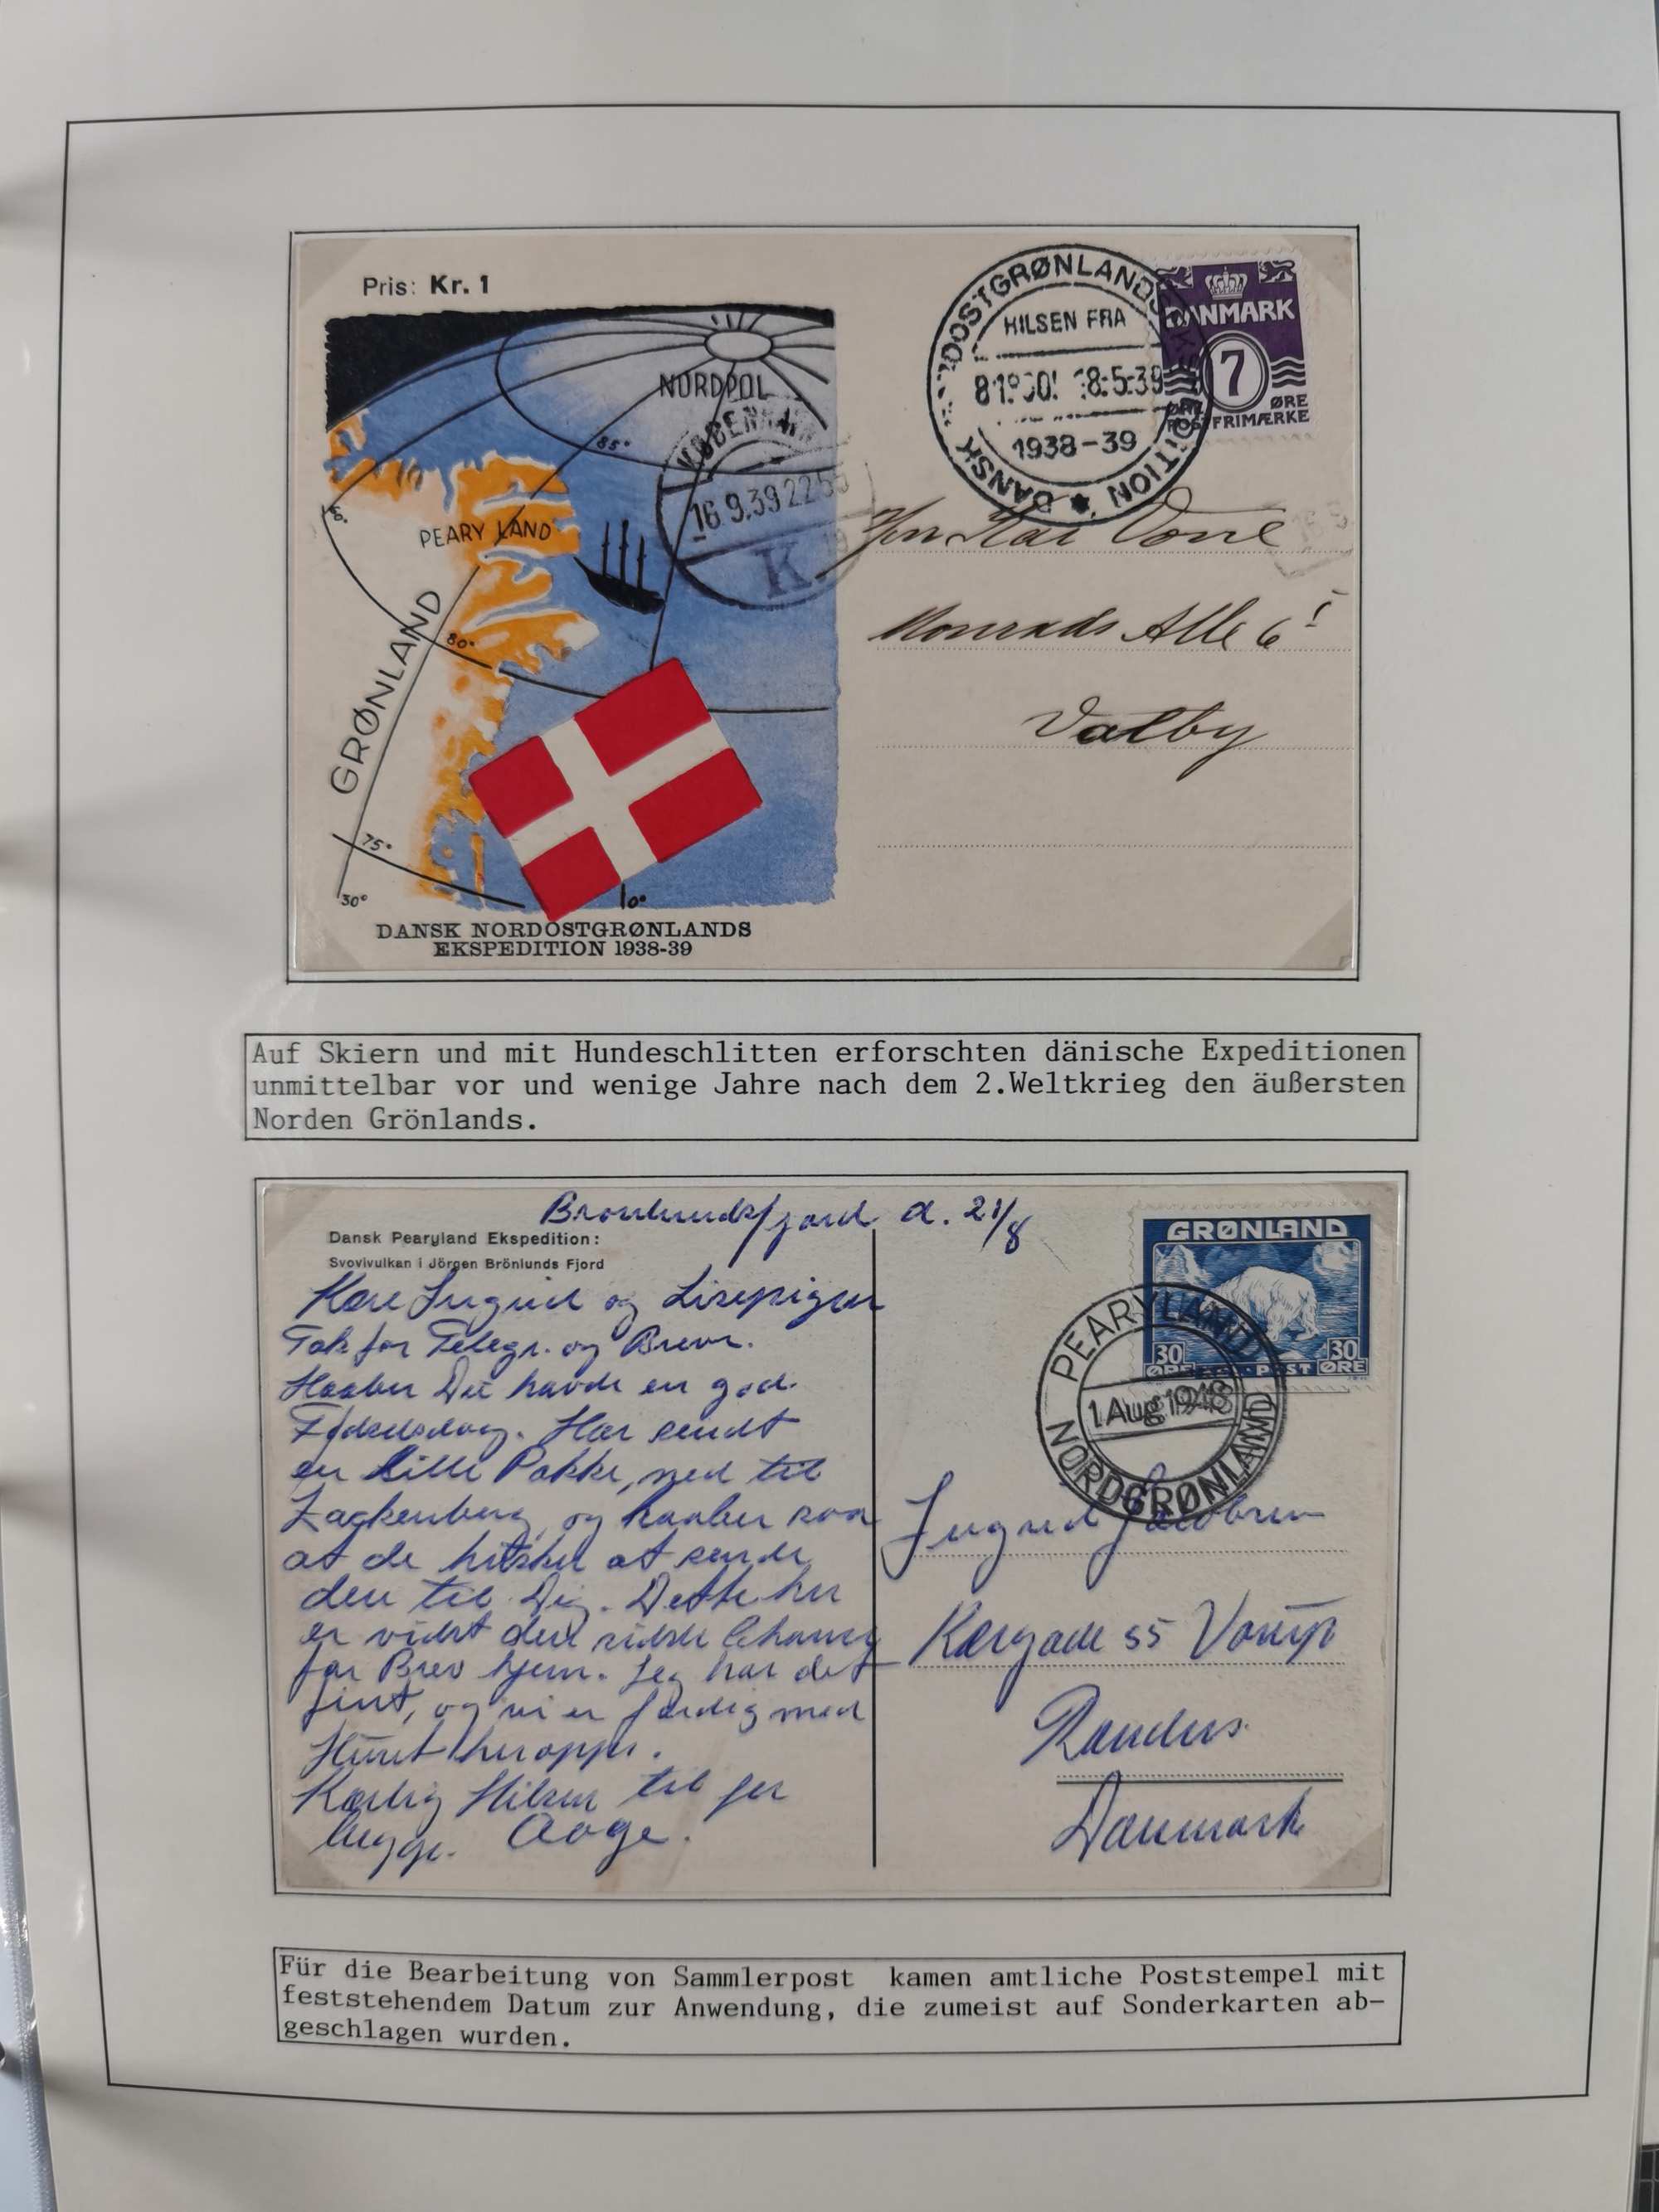 Pris: Kr. 1
NORDPOL
85°
PEARY LAND
GRØNLAND
80°
75°
30°
10°
DANSK NORDOSTGRØNLANDS
EKSPEDITION 1938-39
KØBENHAVN
16.9.39 22
K
HILSEN FRA
18:5:39
1938-39
DANSK
DANMARK
7
ØRE
POSTFRIMÆRKE
Kai
Alle 6
Valby
Auf Skiern und mit Hundeschlitten erforschten dänische Expeditionen
unmittelbar vor und wenige Jahre nach dem 2.Weltkrieg den äußersten
Norden Grönlands.
Brønlundsfjord d. 21/8
Dansk Pearyland Ekspedition:
Svovlvulkan i Jörgen Brönlunds Fjord
Kære og Lisepigen
Tak for Telegr. og Breve.
Haaber Du havde en god
Fødselsdag. Har sendt
en lille Pakke, ned til
Zackenberg, og haaber saa
at de at sende
den til Dig. Dette her
er vidst den sidste Chance
for Brev hjem. Jeg har det
fint, og vi er færdig med
Huset heroppe.
Kærlig Hilsen til Jer
begge. Aage.
GRØNLAND
30 30
ØRE POST ØRE
PEARYLAND
1 Aug 1948
NORDGRØNLAND
Jacobsen
55
Randers
Danmark
Für die Bearbeitung von Sammlerpost kamen amtliche Poststempel mit
feststehendem Datum zur Anwendung, die zumeist auf Sonderkarten ab-
geschlagen wurden.